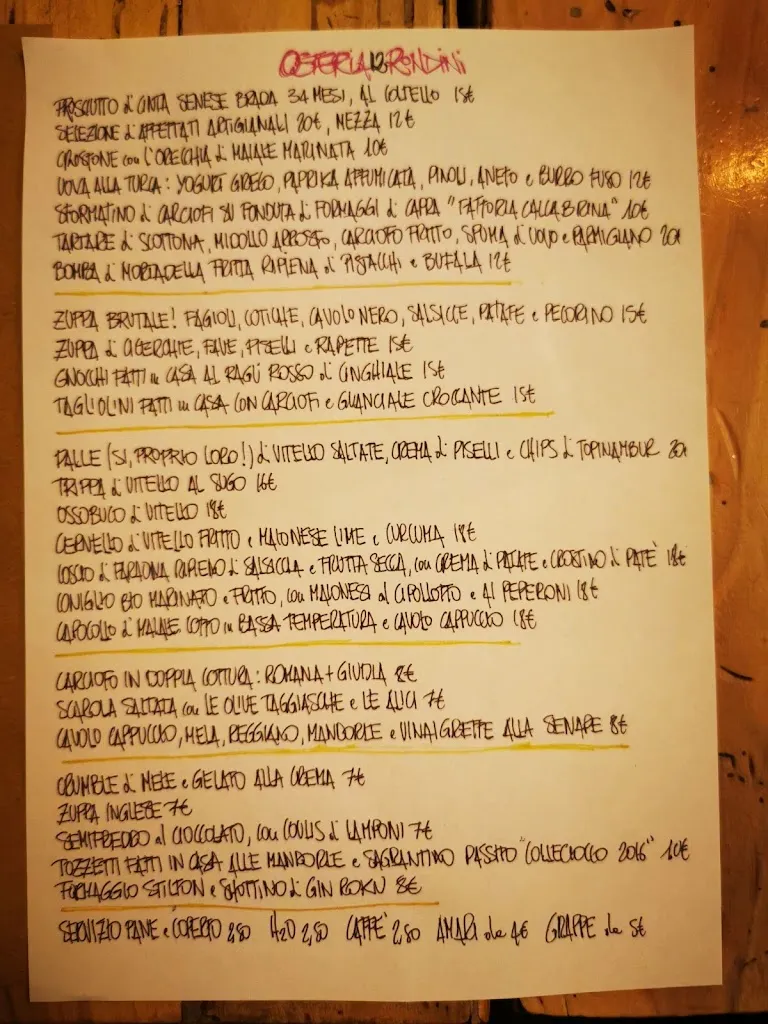 OSTERIA 12 RONDINI
PROSCIUTTO di CINTA SENESE BRADA 34 MESI, AL COLTELLO 15€
SELEZIONE di AFFETTATI ARTIGIANALI 20€, MEZZA 12€
CROSTONE con L'ORECCHIA di MAIALE MARINATA 10€
UOVA ALLA TURCA: YOGURT GRECO, PAPRIKA AFFUMICATA, PINOLI, ANETO e BURRO FUSO 12€
SFORMATINO di CARCIOFI SU FONDUTA di FORMAGGI di CAPRA "FATTORIA CALCABRINA" 10€
TARTARE di SCOTTONA, MIDOLLO ARROSTO, CARCIOFO FRITTO, SPUMA di UOVO e PARMIGIANO 20€
BOMBA di MORTADELLA FRITTA RIPIENA di PISTACCHI e BUFALA 12€
ZUPPA BRUTALE! FAGIOLI, COTICHE, CAVOLO NERO, SALSICCE, PATATE e PECORINO 15€
ZUPPA di CICERCHIE, FAVE, PISELLI e RAPETTE 15€
GNOCCHI FATTI in CASA AL RAGÙ ROSSO di CINGHIALE 15€
TAGLIOLINI FATTI in CASA CON CARCIOFI e GUANCIALE CROCCANTE 15€
PALLE (SI, PROPRIO LORO!) di VITELLO SALTATE, CREMA di PISELLI e CHIPS di TOPINAMBUR 20€
TRIPPA di VITELLO AL SUGO 16€
OSSOBUCO di VITELLO 18€
CERVELLO di VITELLO FRITTO e MAIONESE LIME e CURCUMA 18€
COSCIO di FARAONA RIPIENO di SALSICCIA e FRUTTA SECCA, con CREMA di PATATE e CROSTINO di PATÈ 18€
CONIGLIO BIO MARINATO e FRITTO, con MAIONESI al CIPOLLOTTO e AI PEPERONI 18€
CAPOCOLLO di MAIALE COTTO in BASSA TEMPERATURA e CAVOLO CAPPUCCIO 18€
CARCIOFO IN DOPPIA COTTURA: ROMANA + GIUDIA 8€
SCAROLA SALTATA con LE OLIVE TAGGIASCHE e LE ALICI 7€
CAVOLO CAPPUCCIO, MELA, REGGIANO, MANDORLE e VINAIGRETTE ALLA SENAPE 8€
CRUMBLE di MELE e GELATO ALLA CREMA 7€
ZUPPA INGLESE 7€
SEMIFREDDO al CIOCCOLATO, con COULIS di LAMPONI 7€
TOZZETTI FATTI IN CASA ALLE MANDORLE e SAGRANTINO PASSITO "COLLECIOCCO 2016" 10€
FORMAGGIO STILTON e SHOTTINO di GIN ROKU 8€
SERVIZIO PANE e COPERTO 2,50 H2O 2,50 CAFFÈ 2,50 AMARI da 4€ GRAPPE da 5€